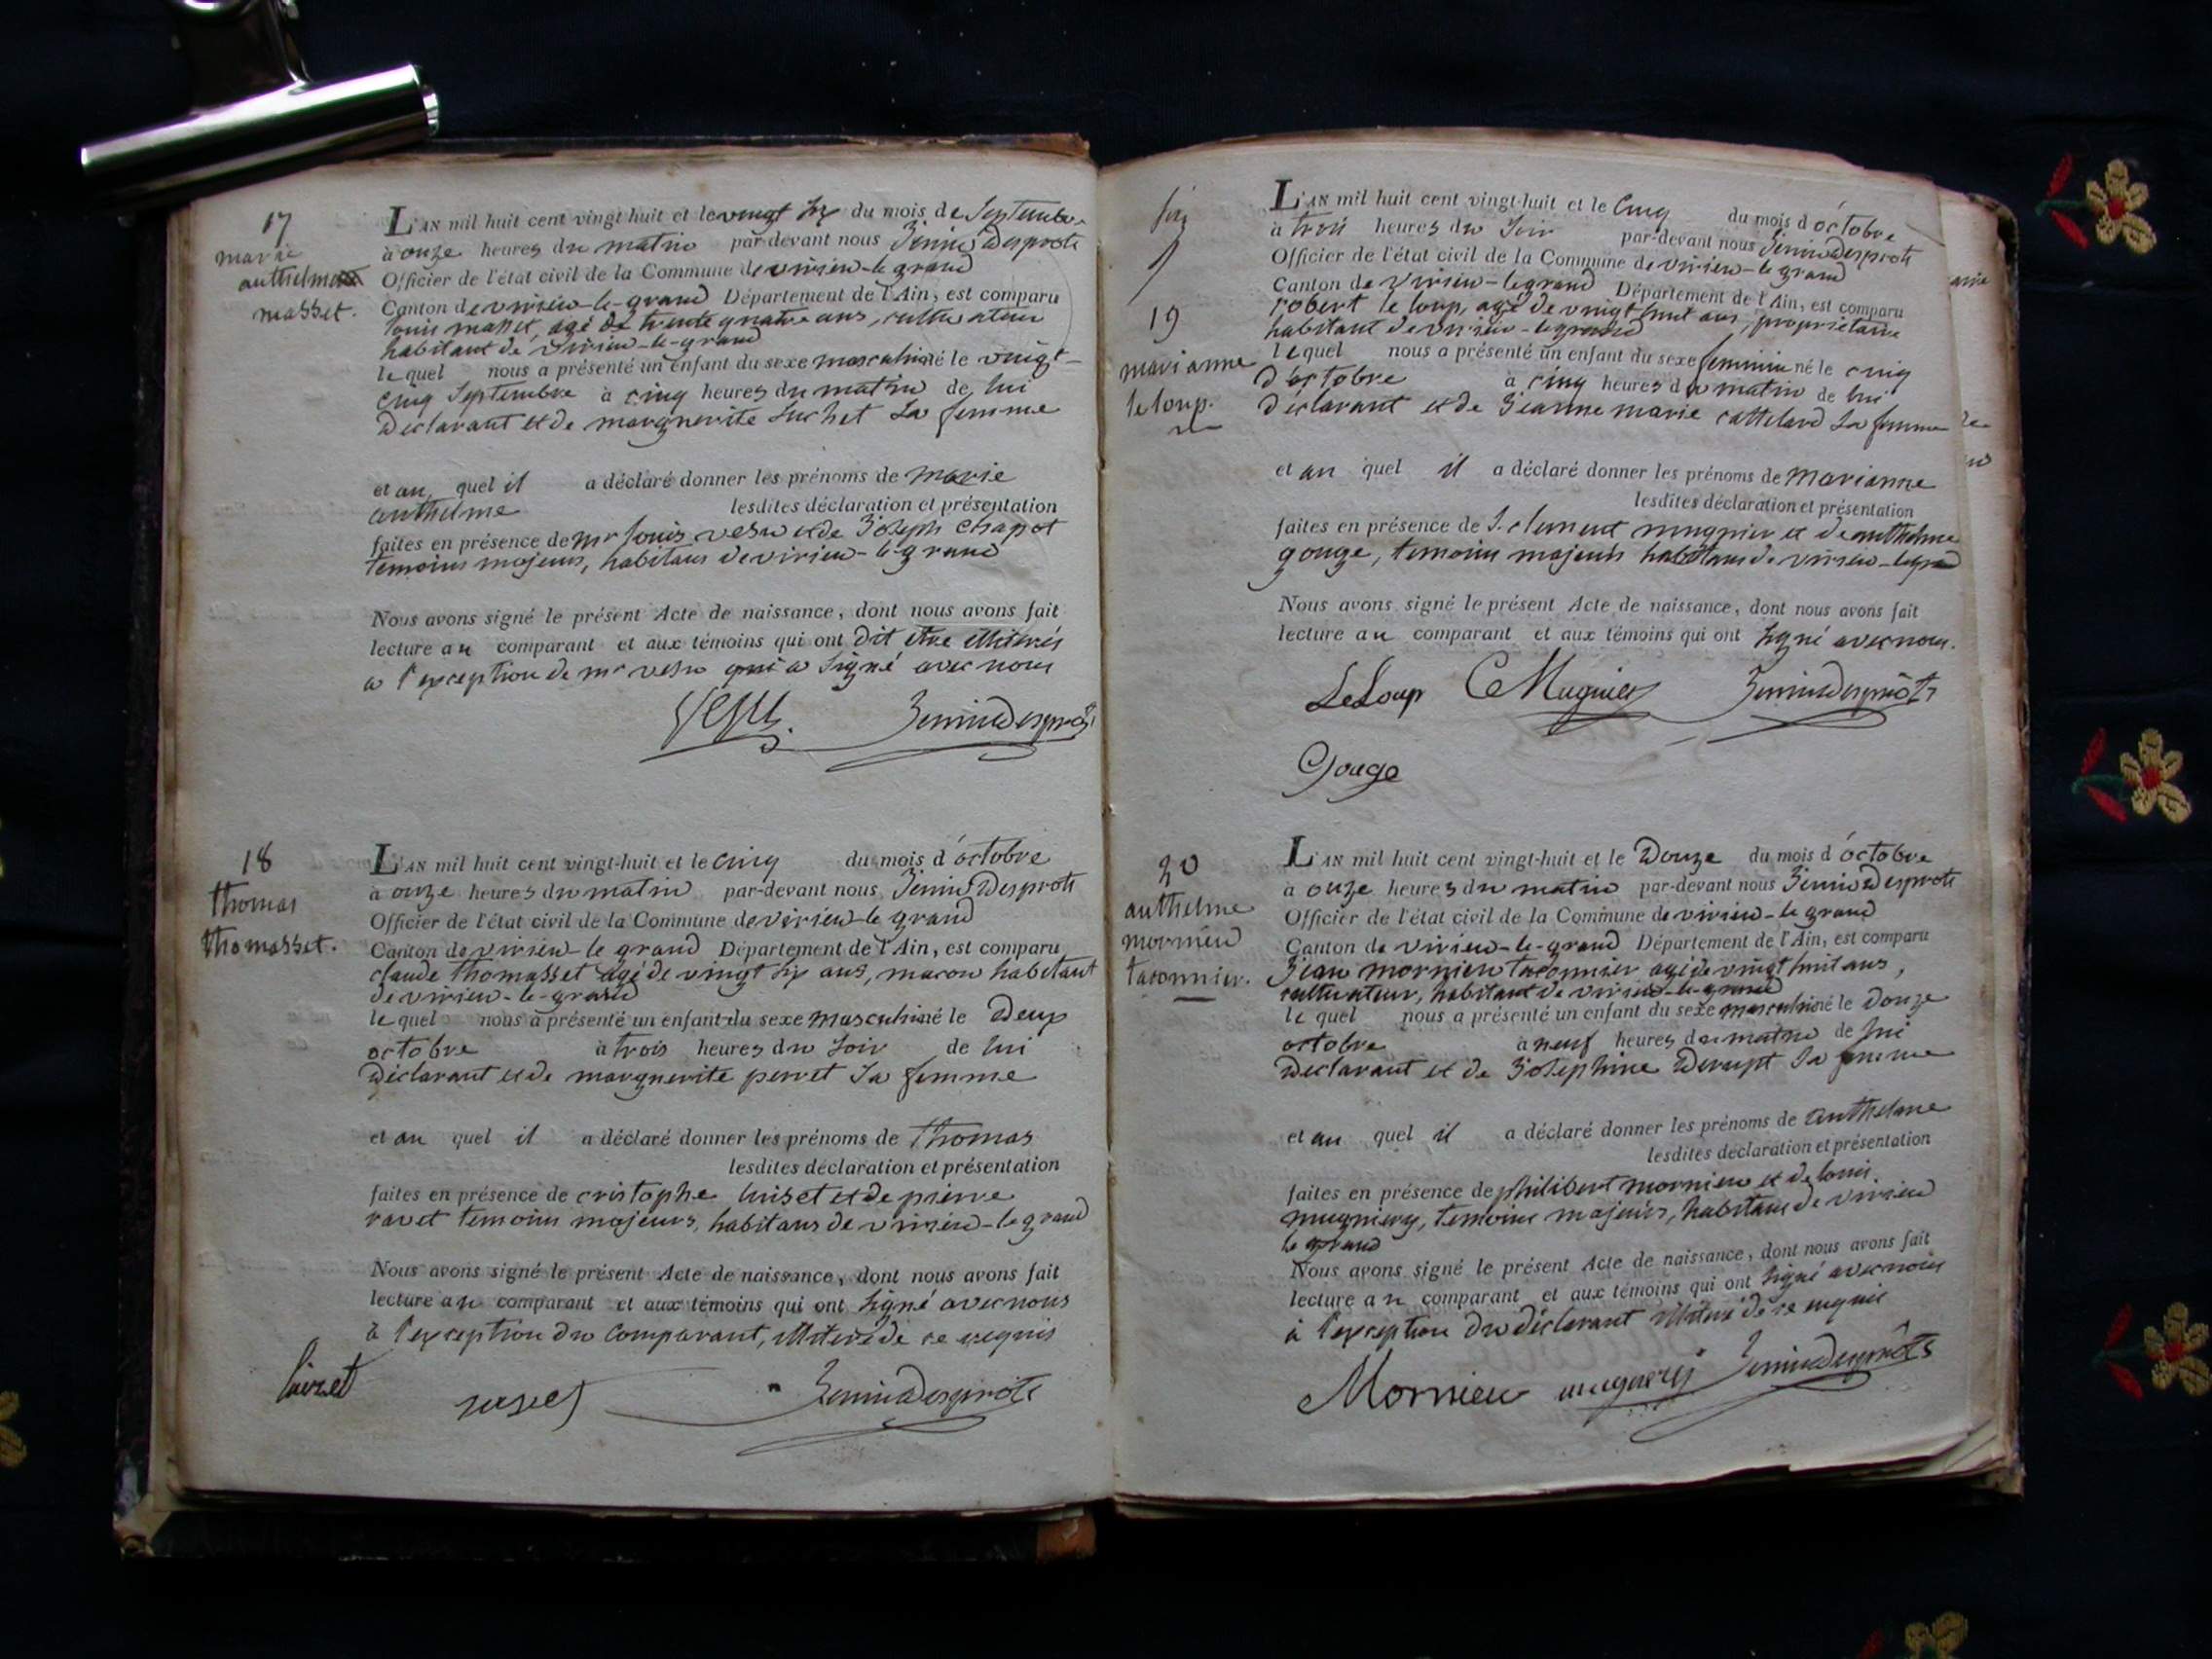 17
marie
anthelme
masset.
L'AN mil huit cent vingt-huit et le vingt six du mois de Septembre
à onze heures du matin par-devant nous Jenin Desprots
Officier de l'état civil de la Commune de virieu-le grand
Canton de virieu-le-grand Département de l'Ain, est comparu
louis masset, agé de trente quatre ans, cultivateur
habitant de virieu-le-grand
lequel nous a présenté un enfant du sexe masculin né le vingt-
cinq Septembre à cinq heures du matin de lui
déclarant et de marguerite Suchet Sa femme
et au quel il a déclaré donner les prénoms de marie
anthelme lesdites déclaration et présentation
faites en présence de mr louis vesu et de Joseph Chapot
temoins majeurs, habitans de virieu-le-grand
Nous avons signé le présent Acte de naissance, dont nous avons fait
lecture au comparant et aux témoins qui ont dit être illiterés
a l'exception de mr vesu qui a signé avec nous
Vesu. Jenin Desprots
18
thomas
thomasset.
L'AN mil huit cent vingt-huit et le cinq du mois d'octobre
à onze heures du matin par-devant nous Jenin Desprots
Officier de l'état civil de la Commune de virieu-le grand
Canton de virieu-le grand Département de l'Ain, est comparu
claude thomasset agé de vingt six ans, macon habitant
de virieu-le-grand
lequel nous a présenté un enfant du sexe masculin né le Deux
octobre à trois heures du soir de lui
Déclarant et de marguerite perret Sa femme
et au quel il a déclaré donner les prénoms de thomas
lesdites déclaration et présentation
faites en présence de cristophe luiset et de pierre
ravet temoins majeurs, habitans de virieu-le grand
Nous avons signé le présent Acte de naissance, dont nous avons fait
lecture au comparant et aux témoins qui ont signé avec nous
à l'exception du comparant, illiteré de ce requis
Jenin Desprots
19
marianne
le loup.
L'AN mil huit cent vingt-huit et le cinq du mois d'octobre
à trois heures du Soir par-devant nous Jenin Desprots
Officier de l'état civil de la Commune de virieu-le grand
Canton de virieu-le grand Département de l'Ain, est comparu
robert le loup, agé de vingt huit ans, propriétaire
habitant de virieu-le grand
lequel nous a présenté un enfant du sexe feminin né le cinq
d'octobre à cinq heures du matin de lui
déclarant et de Jeanne marie cattelard Sa femme
et au quel il a déclaré donner les prénoms de marianne
lesdites déclaration et présentation
faites en présence de J. clement mugnier et de anthelme
gouge, temoins majeurs habitans de virieu-le grand
Nous avons signé le présent Acte de naissance, dont nous avons fait
lecture au comparant et aux témoins qui ont signé avec nous.
LeLoup CMugnier Jenin Desprôts
Gouge
20
anthelme
mornieu
taconnier.
L'AN mil huit cent vingt-huit et le Douze du mois d'octobre
à onze heures du matin par-devant nous Jenin Desprots
Officier de l'état civil de la Commune de virieu-le grand
Canton de virieu-le-grand Département de l'Ain, est comparu
Jean mornieu taconnier agé de vingt huit ans,
cultivateur, habitant de virieu-le-grand
lequel nous a présenté un enfant du sexe masculin né le Douze
octobre à neuf heures du matin de lui
Déclarant et de Josephine Derupt Sa femme
et au quel il a déclaré donner les prénoms de anthelme
lesdites déclaration et présentation
faites en présence de philibert mornieu et de louis
mugniery, temoins majeurs, habitans de virieu
le grand
Nous avons signé le présent Acte de naissance, dont nous avons fait
lecture au comparant et aux témoins qui ont signé avec nous
à l'exception du déclarant illiteré de ce requis
Mornieu Jenin Desprôts